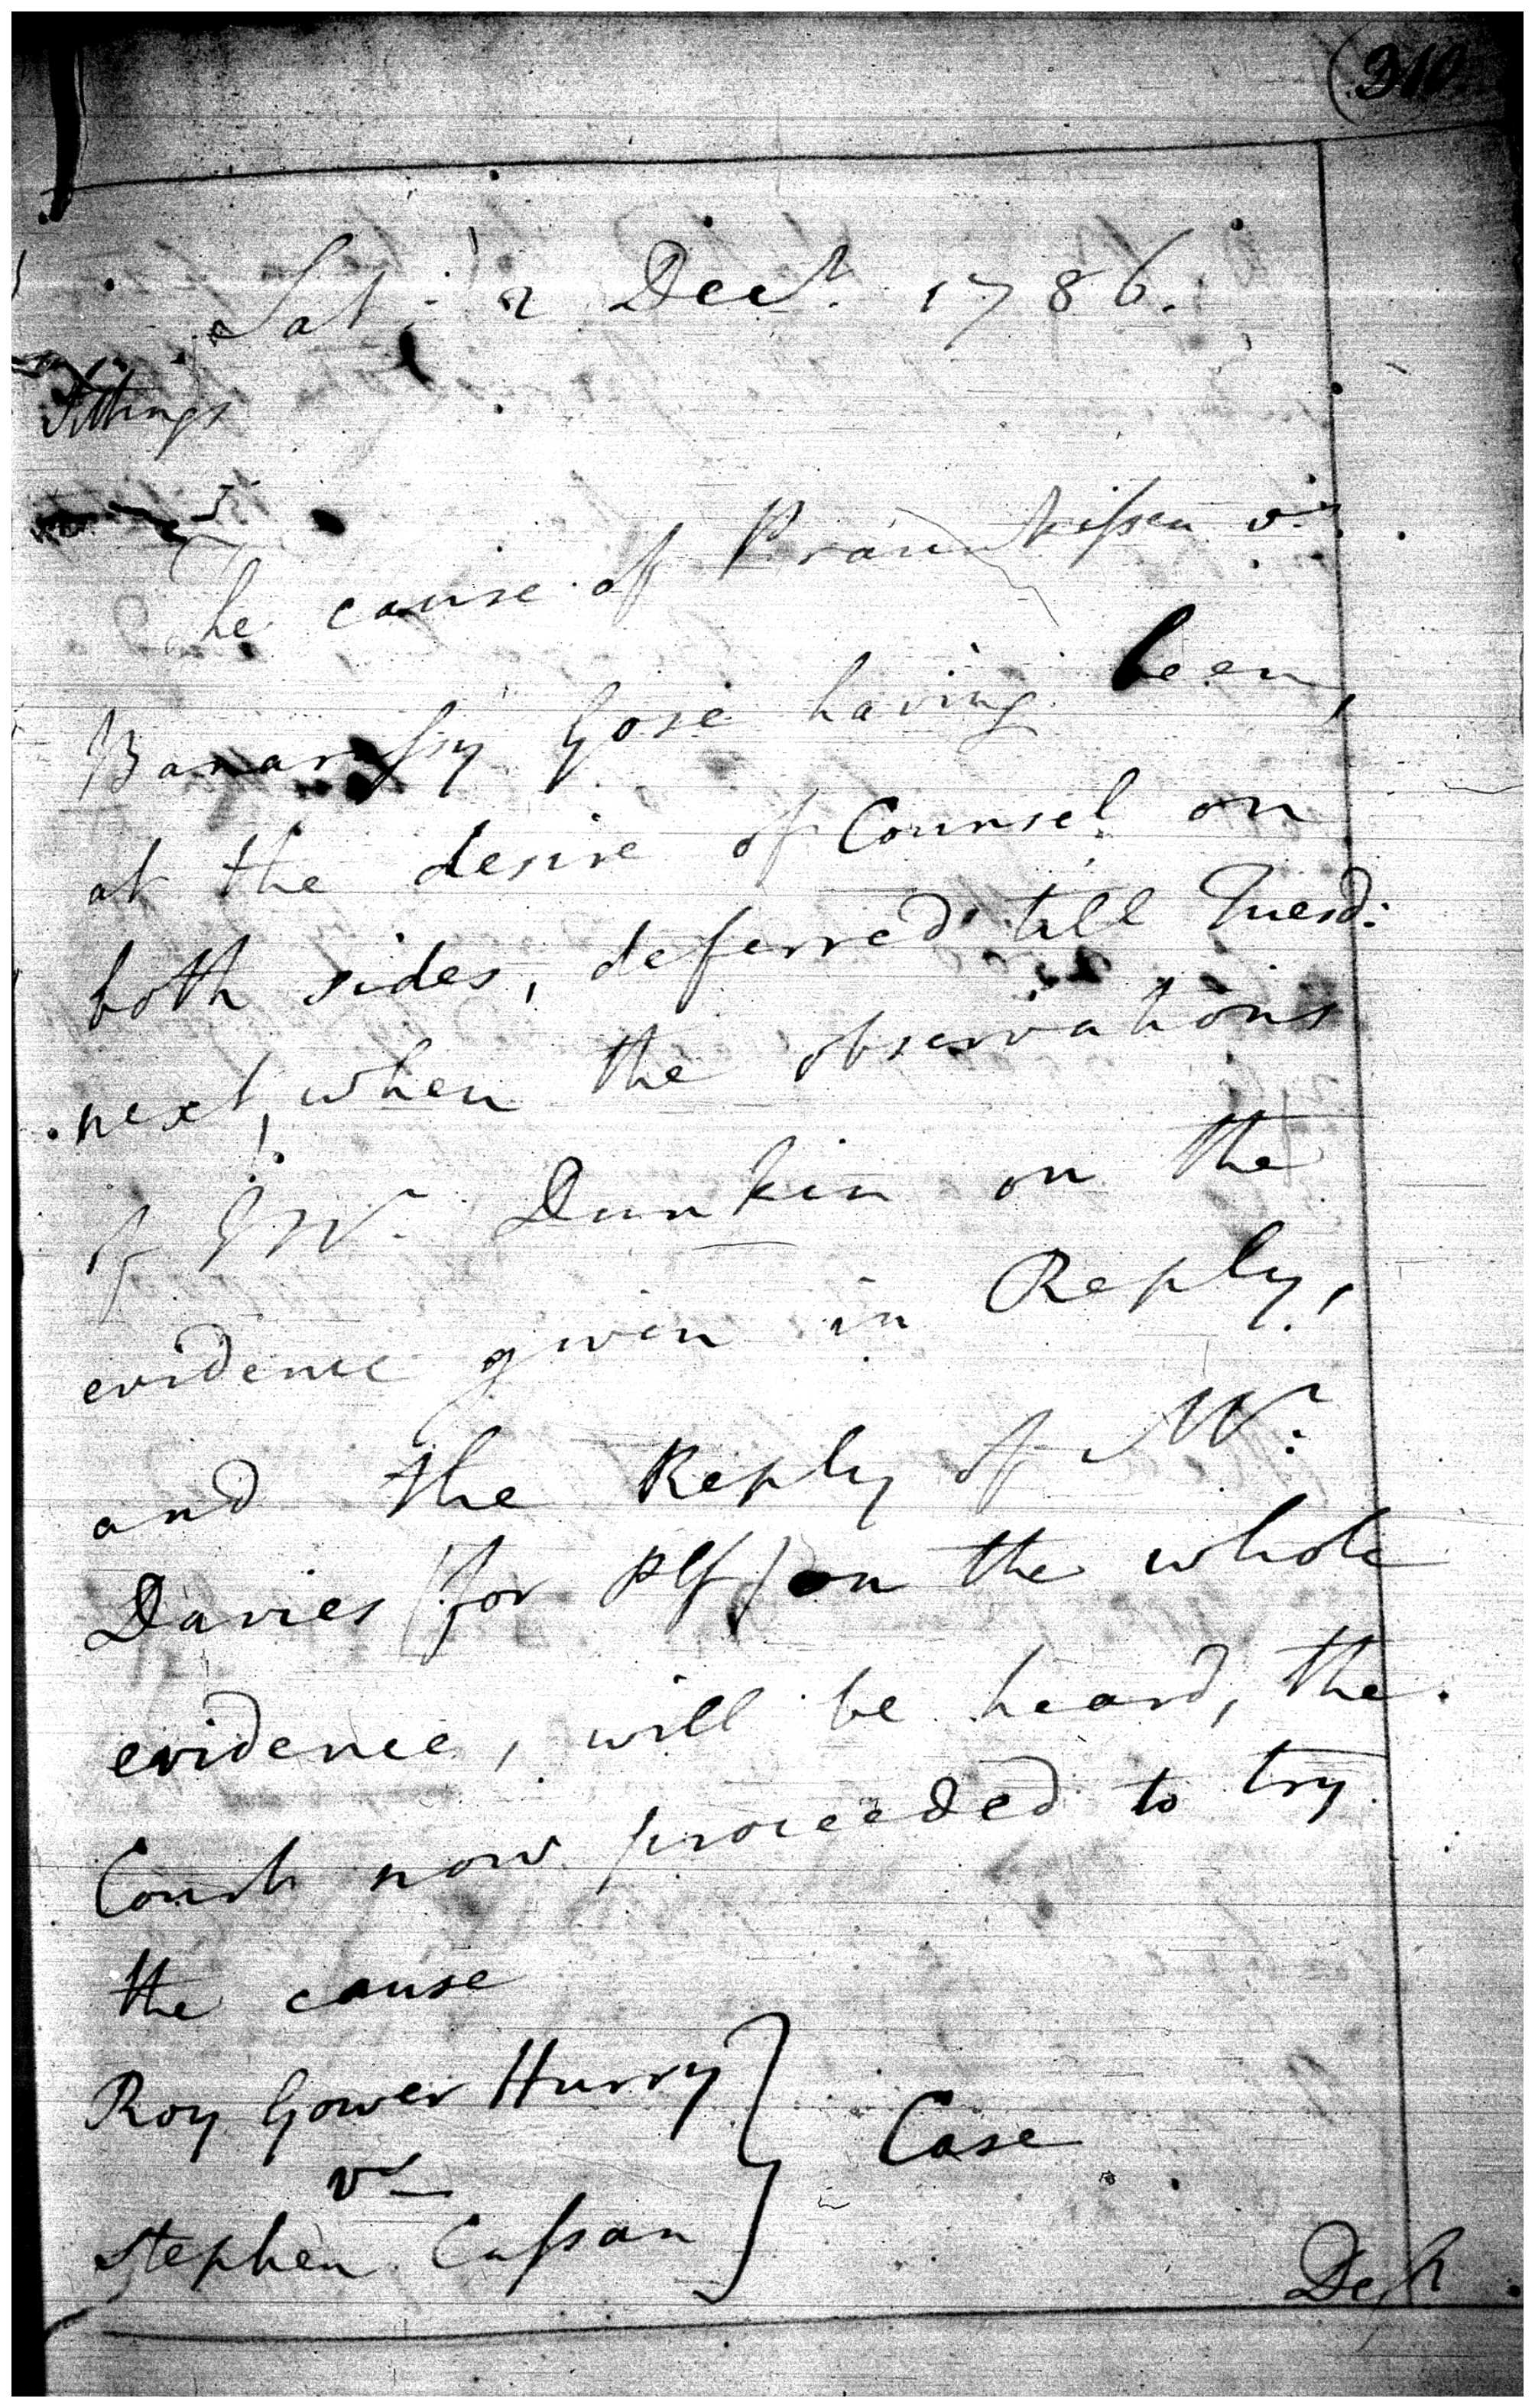 (310
Sat: 2 Decr. 1786.
Sittings
The cause of Praun kissen vs
Banarassy Gose having been,
at the desire of Counsel on
both sides, deferred till Tuesd:
next, when the observations
of Mr. Dunkin on the
evidence given in Reply,
and the Reply of Mr.
Davies (for Plf) on the whole
evidence, will be heard, the
Court now proceeded to try
the cause
Roy Gower Hurry
vs
Stephen Cassan
Case